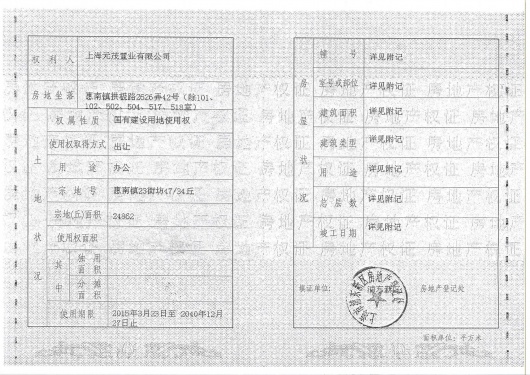 权利人 上海元茂置业有限公司
房地坐落 惠南镇拱极路2626弄42号（除101、
102、502、504、517、518室）
土地状况
权属性质 国有建设用地使用权
使用权取得方式 出让
用途 办公
宗地号 惠南镇23街坊47/34丘
宗地(丘)面积 24962
使用权面积
其中
独用面积
分摊面积
使用期限 2015年3月23日至 2040年12月
27日止
房屋状况
幢号 详见附记
室号或部位 详见附记
建筑面积 详见附记
建筑类型 详见附记
用途 详见附记
总层数 详见附记
竣工日期 详见附记
核证单位: 浦东新区 房地产登记处
面积单位: 平方米